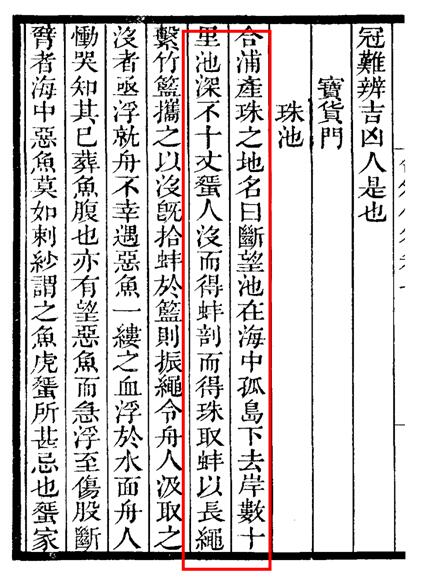 冠難辨吉凶人是也
寶貨門
珠池
合浦產珠之地名曰斷望池在海中孤島下去岸數十
里池深不十丈蜑人沒而得蚌剖而得珠取蚌以長繩
繫竹籃攜之以沒旣拾蚌於籃則振繩令舟人汲取之
沒者亟浮就舟不幸遇惡魚一縷之血浮於水面舟人
慟哭知其已葬魚腹也亦有望惡魚而急浮至傷股斷
臂者海中惡魚莫如刺紗謂之魚虎蜑所甚忌也蜑家